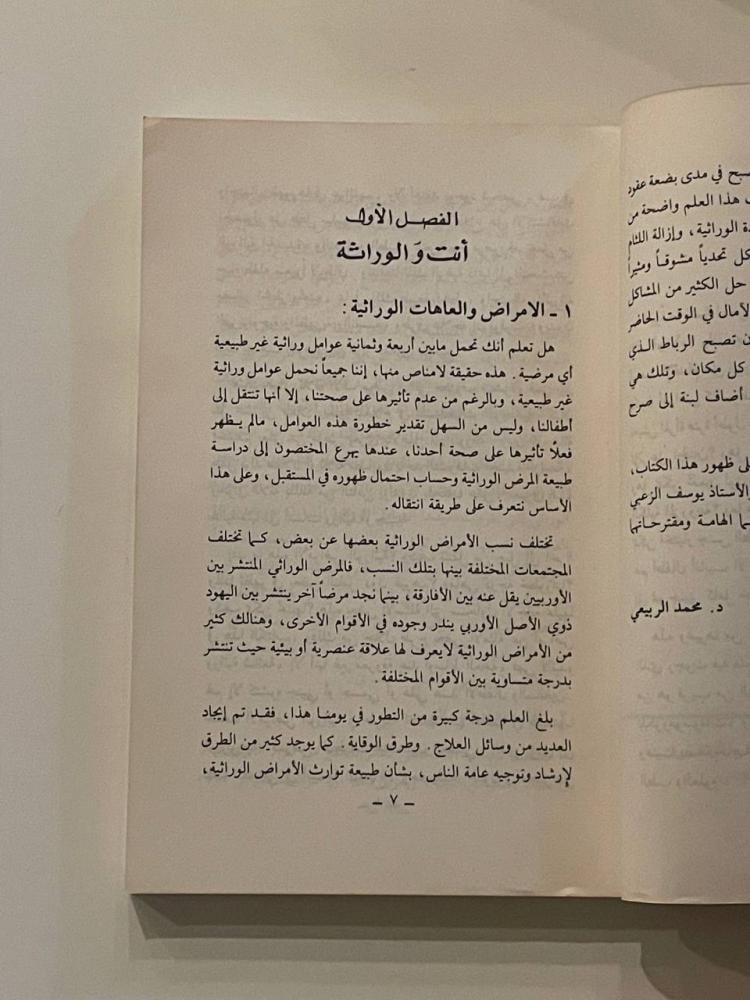 صبح في مدى بضعة عقود
هذا العلم واضحة من
الوراثية، وإزالة اللثام
كل تحدياً مشوقاً ومثيراً
حل الكثير من المشاكل
الآمال في الوقت الحاضر
تصبح الرباط الذي
كل مكان، وتلك هي
أضاف لبنة إلى صرح
ظهور هذا الكتاب،
والأستاذ يوسف الزعبي
الهامة ومقترحاتها
د. محمد الربيعي
الفصل الأول
أنت وَالوراثة
١ ـ الامراض والعاهات الوراثية :
هل تعلم أنك تحمل مابين أربعة وثمانية عوامل وراثية غير طبيعية
أي مرضية. هذه حقيقة لامناص منها، إننا جميعاً نحمل عوامل وراثية
غير طبيعية، وبالرغم من عدم تأثيرها على صحتنا، إلا أنها تنتقل إلى
أطفالنا، وليس من السهل تقدير خطورة هذه العوامل، مالم يظهر
فعلاً تأثيرها على صحة أحدنا، عندها يهرع المختصون إلى دراسة
طبيعة المرض الوراثية وحساب احتمال ظهوره في المستقبل، وعلى هذا
الأساس نتعرف على طريقة انتقاله.
تختلف نسب الأمراض الوراثية بعضها عن بعض، كما تختلف
المجتمعات المختلفة بينها بتلك النسب، فالمرض الوراثي المنتشر بين
الأوربيين يقل عنه بين الأفارقة، بينما نجد مرضاً آخر ينتشر بين اليهود
ذوي الأصل الأوربي يندر وجوده في الأقوام الأخرى، وهنالك كثير
من الأمراض الوراثية لايعرف لها علاقة عنصرية أو بيئية حيث تنتشر
بدرجة متساوية بين الأقوام المختلفة.
بلغ العلم درجة كبيرة من التطور في يومنا هذا، فقد تم إيجاد
العديد من وسائل العلاج. وطرق الوقاية. كما يوجد كثير من الطرق
لإرشاد وتوجيه عامة الناس، بشأن طبيعة توارث الأمراض الوراثية،
ـ ٧ ـ